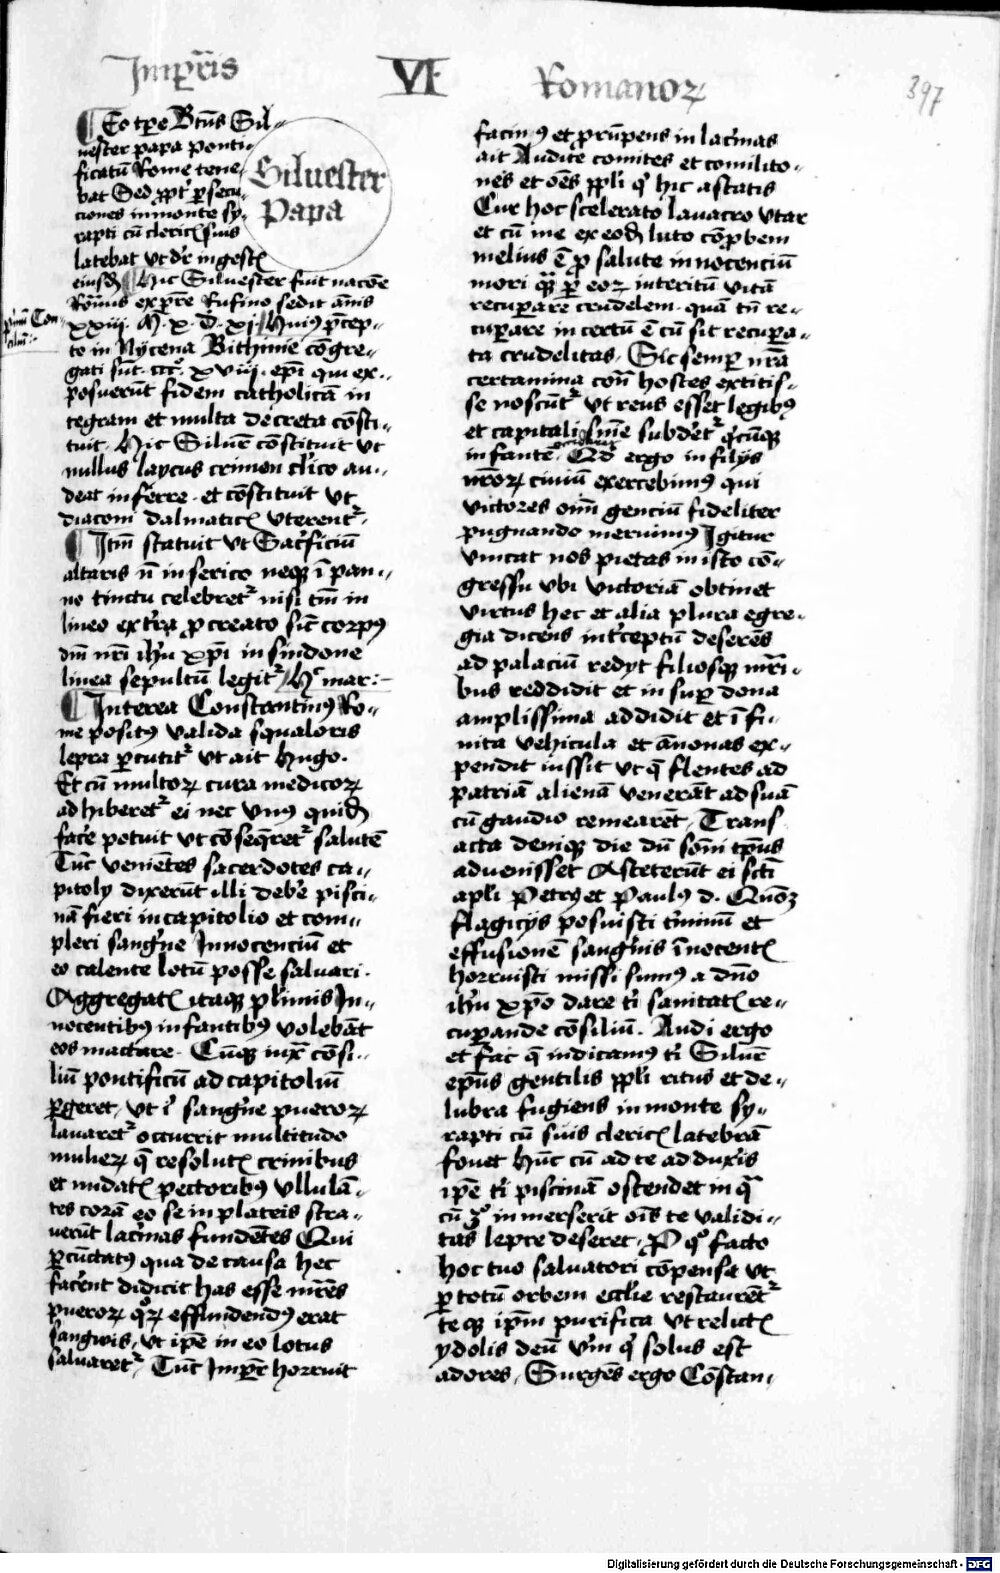 Imperĩs VI Romanoꝝ
397
Eo tꝑe Btũs Sil-
uester papa ponti-
ficatũ Rome tene-
bat Sed ꝓpt̾ ꝑsecu
ciones in monte sy-
rapti cũ cleric̃ suis
latebat ut dr̃ in gest̃
Siluester
Papa
eiusdẽ Hic Siluester fuit nacõe
Romãus ex pr̃e Rufino sedit annis
xxiij. M. x. D. xj. Huiꝯ p̃cep-
to in Nycena Bithinie cõgre-
gati sũt .ccc. xviij. ep̃i qui ex-
posuerũt fidem catholicã in
tegram et multa decreta cõsti-
tuit. Hic Siluẽr cõstituit ut
nullus laycus crimen cl̃ico au-
deat inferre. et cõstituit ut
diaconi dalmatic̃ uterent̾.
Itm̃ statuit ut Sac̾ficiũ
altaris nõ in serico neqꝫ ĩ pan-
no tinctu celebret̾ nisi tm̃ in
lineo ex t̾ra ꝓcreato sic̃ corpꝯ
dñi nr̃i ihũ xp̃i in sindone
linea sepultũ legit̾ H̾ mar.
Interea Constantinꝯ Ro-
me positꝯ valida squaloris
lepra ꝑcutit̾ ut ait Hugo.
Et cũ multoꝝ cura medicoꝝ
adhiberet̾ ei nec unꝯ quidẽ
fac̾e potuit ut cõseq̃ret̾ salutẽ
Tũc venie͂tes sacerdotes ca-
pitoly dixerũt illi deb̾e pisci-
nã fieri in capitolio et com-
pleri sang̾ne Innocenciũ et
eo calente lotũ posse saluari.
Aggregat̃ itaqꝫ pl̾imis In-
nocentibꝯ infantibꝯ volebãt
eos mactare. Cũqꝫ iux̃ cõsi-
liũ pontificũ ad capitoliũ
ꝑgeret, ut ĩ sang̾ne pueroꝝ
lauaret̾ occurrit multitudo
mulieꝝ q̃ resolut̃ crinibus
et nudat̃ pectoribꝯ vllulã-
tes corã eo se in plateis stra-
uerũt lac̾mas fundẽtes Qui
ꝑcũctatꝯ qua de causa hec
fac̾ent didicit has esse mr̃es
pueroꝝ q̊ꝝ effundendꝯ erat
sangwis, ut ip̃e in eo lotus
saluaret̾. Tũc Imper̃ horruit
facinꝯ et prũpens in lac̾mas
ait Audite comites et comilito-
nes et oẽs pp̃li q̾ hic astatis
Cur hoc scelerato lauacro utar
et cũ me ex eodẽ luto cõp̃bem
melius ẽ ꝓ salute innocenciũ
mori quã ꝑ eoꝝ interitũ vitã
recuperare crudelem. quã tñ re-
cuperare in certũ ẽ cũ sit recupa-
ta crudelitas. Sic semꝑ nr̃a
certamina cont̃ hostes extitis-
se noscũt̾ ut reus esset legibꝯ
et capitali sñie subdet̾ q̾cũqꝫ
infante occideret Qd̾ ergo in filijs
nr̃oꝝ ciuiũ exercebimꝯ qui
victores oim̃ genciũ fideliter
pugnando meruimꝯ Igitur
vincat nos pietas in isto cõ-
gressu ubi victoriã obtinet
virtus hec et alia plura egre-
gia dicens int̾ceptũ deserẽs
ad palaciũ redyt filiosqꝫ mr̃i-
bus reddidit et in suꝑ dona
amplissima addidit et ĩfi-
nita vehicula et ãnonas ex-
pendit iussit ut q̃ flentes ad
patriã alienã venerãt ad suã
cũ gaudio remearẽt, Trans
acta deniqꝫ die dũ sõni tp̃us
aduenisset Asteterũt ei sc̃ti
apl̃i Petrꝯ et Paulus d. Qm̃
flagicijs posuisti t̾minũ et
effusionẽ sang̾nis ĩnocent̃
horruisti missi sumꝯ a dño
ihũ xp̃o dare t̾ sanitat̃ re-
cuperande cõsiliũ. Audi ergo
et fac q̃ indicamꝯ t̾ Siluẽr
ep̃us gentilis pp̃li ritus et de-
lubra fugiens in monte sy-
rapti cũ suis cleric̃ latebrã
fouet Hũc cũ ad te adduxe̾is
ip̃e t̾ piscinã ostendet in q̃
cũ inmerserit oĩs te validi-
tas lepre deseret, ꝑ q̊ facto
hoc tuo saluatori cõpensa ut
ꝑ totũ orbem eccl̃ie restaurẽt̾
teqꝫ ip̃m purifica ut relict̃
ydolis deũ vm̾ q̾ solus est
adores, Surgẽs ergo Cõstan-
Digitalisierung gefördert durch die Deutsche Forschungsgemeinschaft - DFG